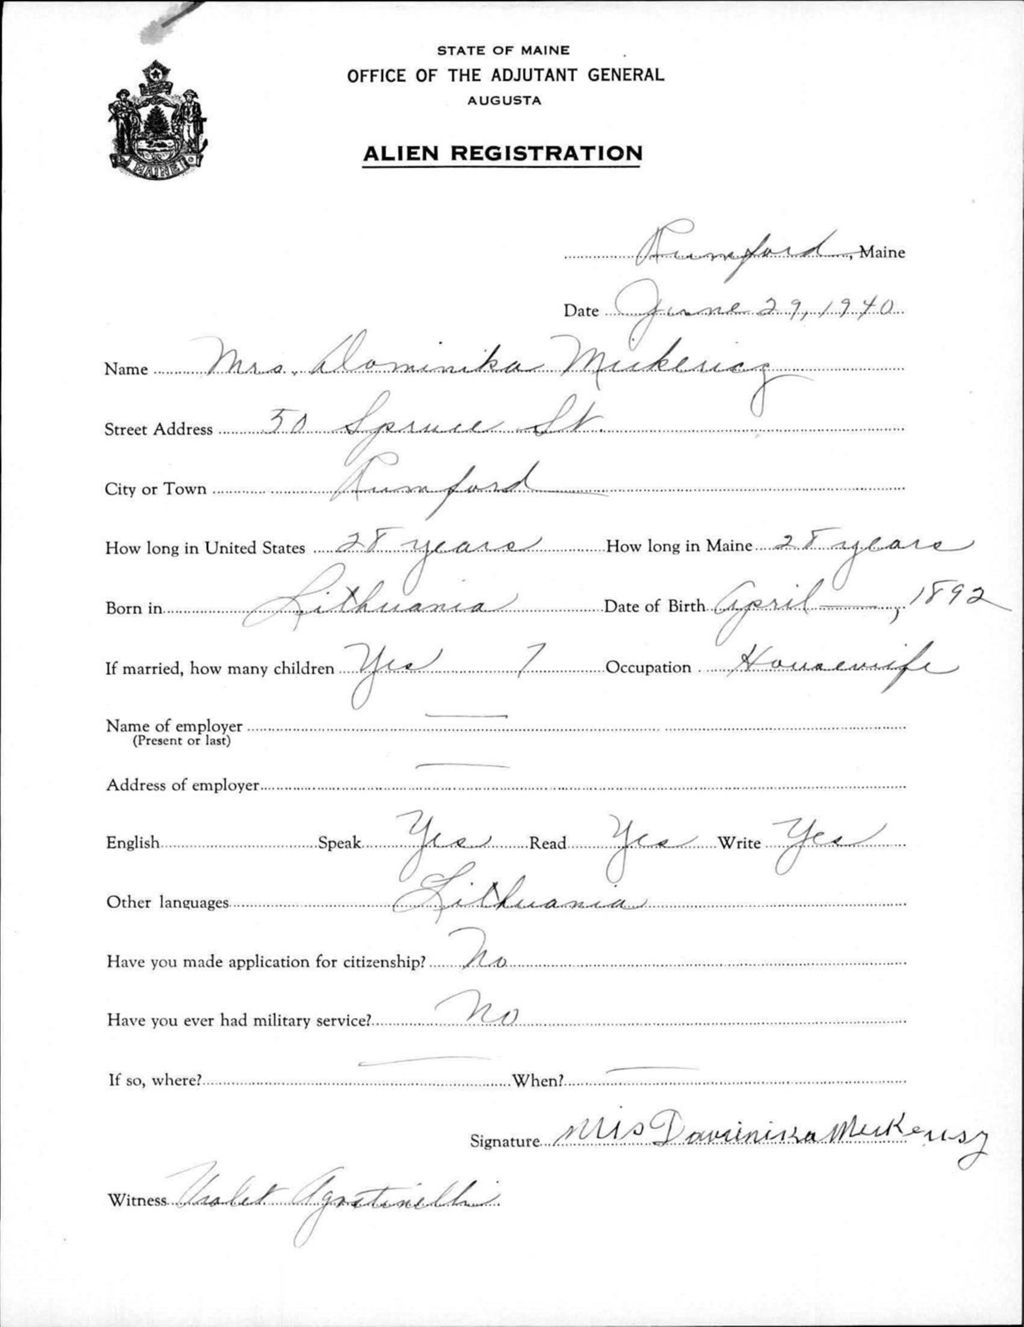 STATE OF MAINE
OFFICE OF THE ADJUTANT GENERAL
AUGUSTA
ALIEN REGISTRATION
MAINE
Rumford, Maine
Date June 29, 1940
Name Mrs. Dominika
Street Address 50 Spruce St.
City or Town Rumford
How long in United States 28 years How long in Maine 28 years
Born in Lithuania Date of Birth April —, 1892
If married, how many children Yes 7 Occupation Housewife
Name of employer —
(Present or last)
Address of employer —
English Speak Yes Read Yes Write Yes
Other languages Lithuania
Have you made application for citizenship? No
Have you ever had military service? No
If so, where? — When? —
Signature Mrs
Witness Violet Agostinelli